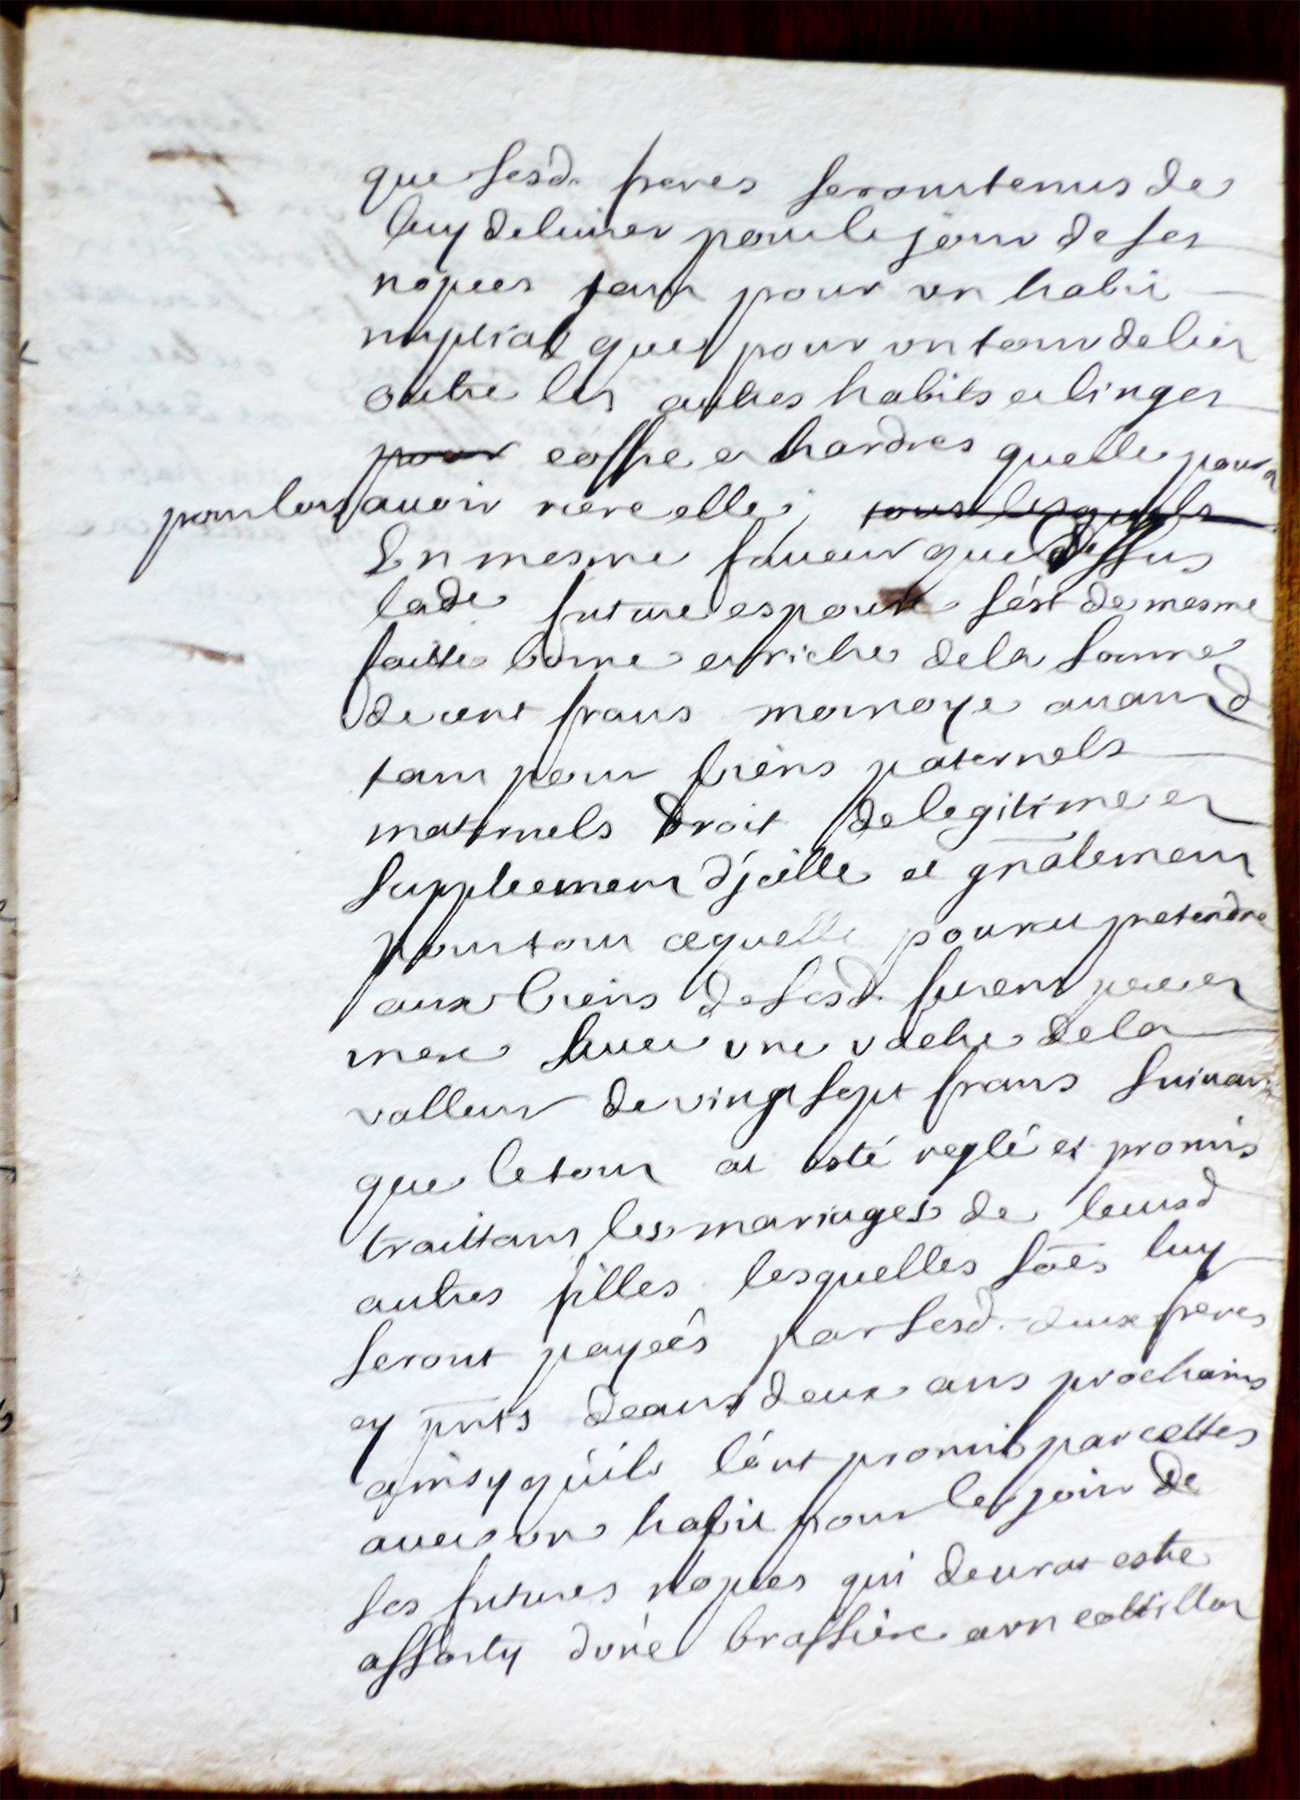 que sesd. freres seront tenus de
luy deliurer pour le jour de ses
nopces tant pour vn habit
nuptial que pour vn tour de lict
outre les autres habits et linges
pour coffre et hardes quelle poura
pour lors avoir riere elle; tous lesquels
En mesme faueur que dessus
lade. future espouse s'est de mesme
faitte bonne et riche de la somme
de cent frans monnoye auantd
tant pour biens paternels
maternels droit de legitime et
supplement d'jcelle et gñalement
pour tout ce quelle pouroit pretendre
aux biens de sesd. furent pere et
mere auec vne vache de la
valleur de vingt sept frans suiuant
que le tout at esté reglé et promis
traittant les mariages de leursd
autres filles lesquelles soēs luy
seront payeés par sesd. deux freres
cy pñts deans deux ans prochains
ainsy qu'ils l'ont promis par cettes
auec vn habit pour le jour de
ses futures nopces qui deurat estre
assorty d'vne brassiere a vn cottillon